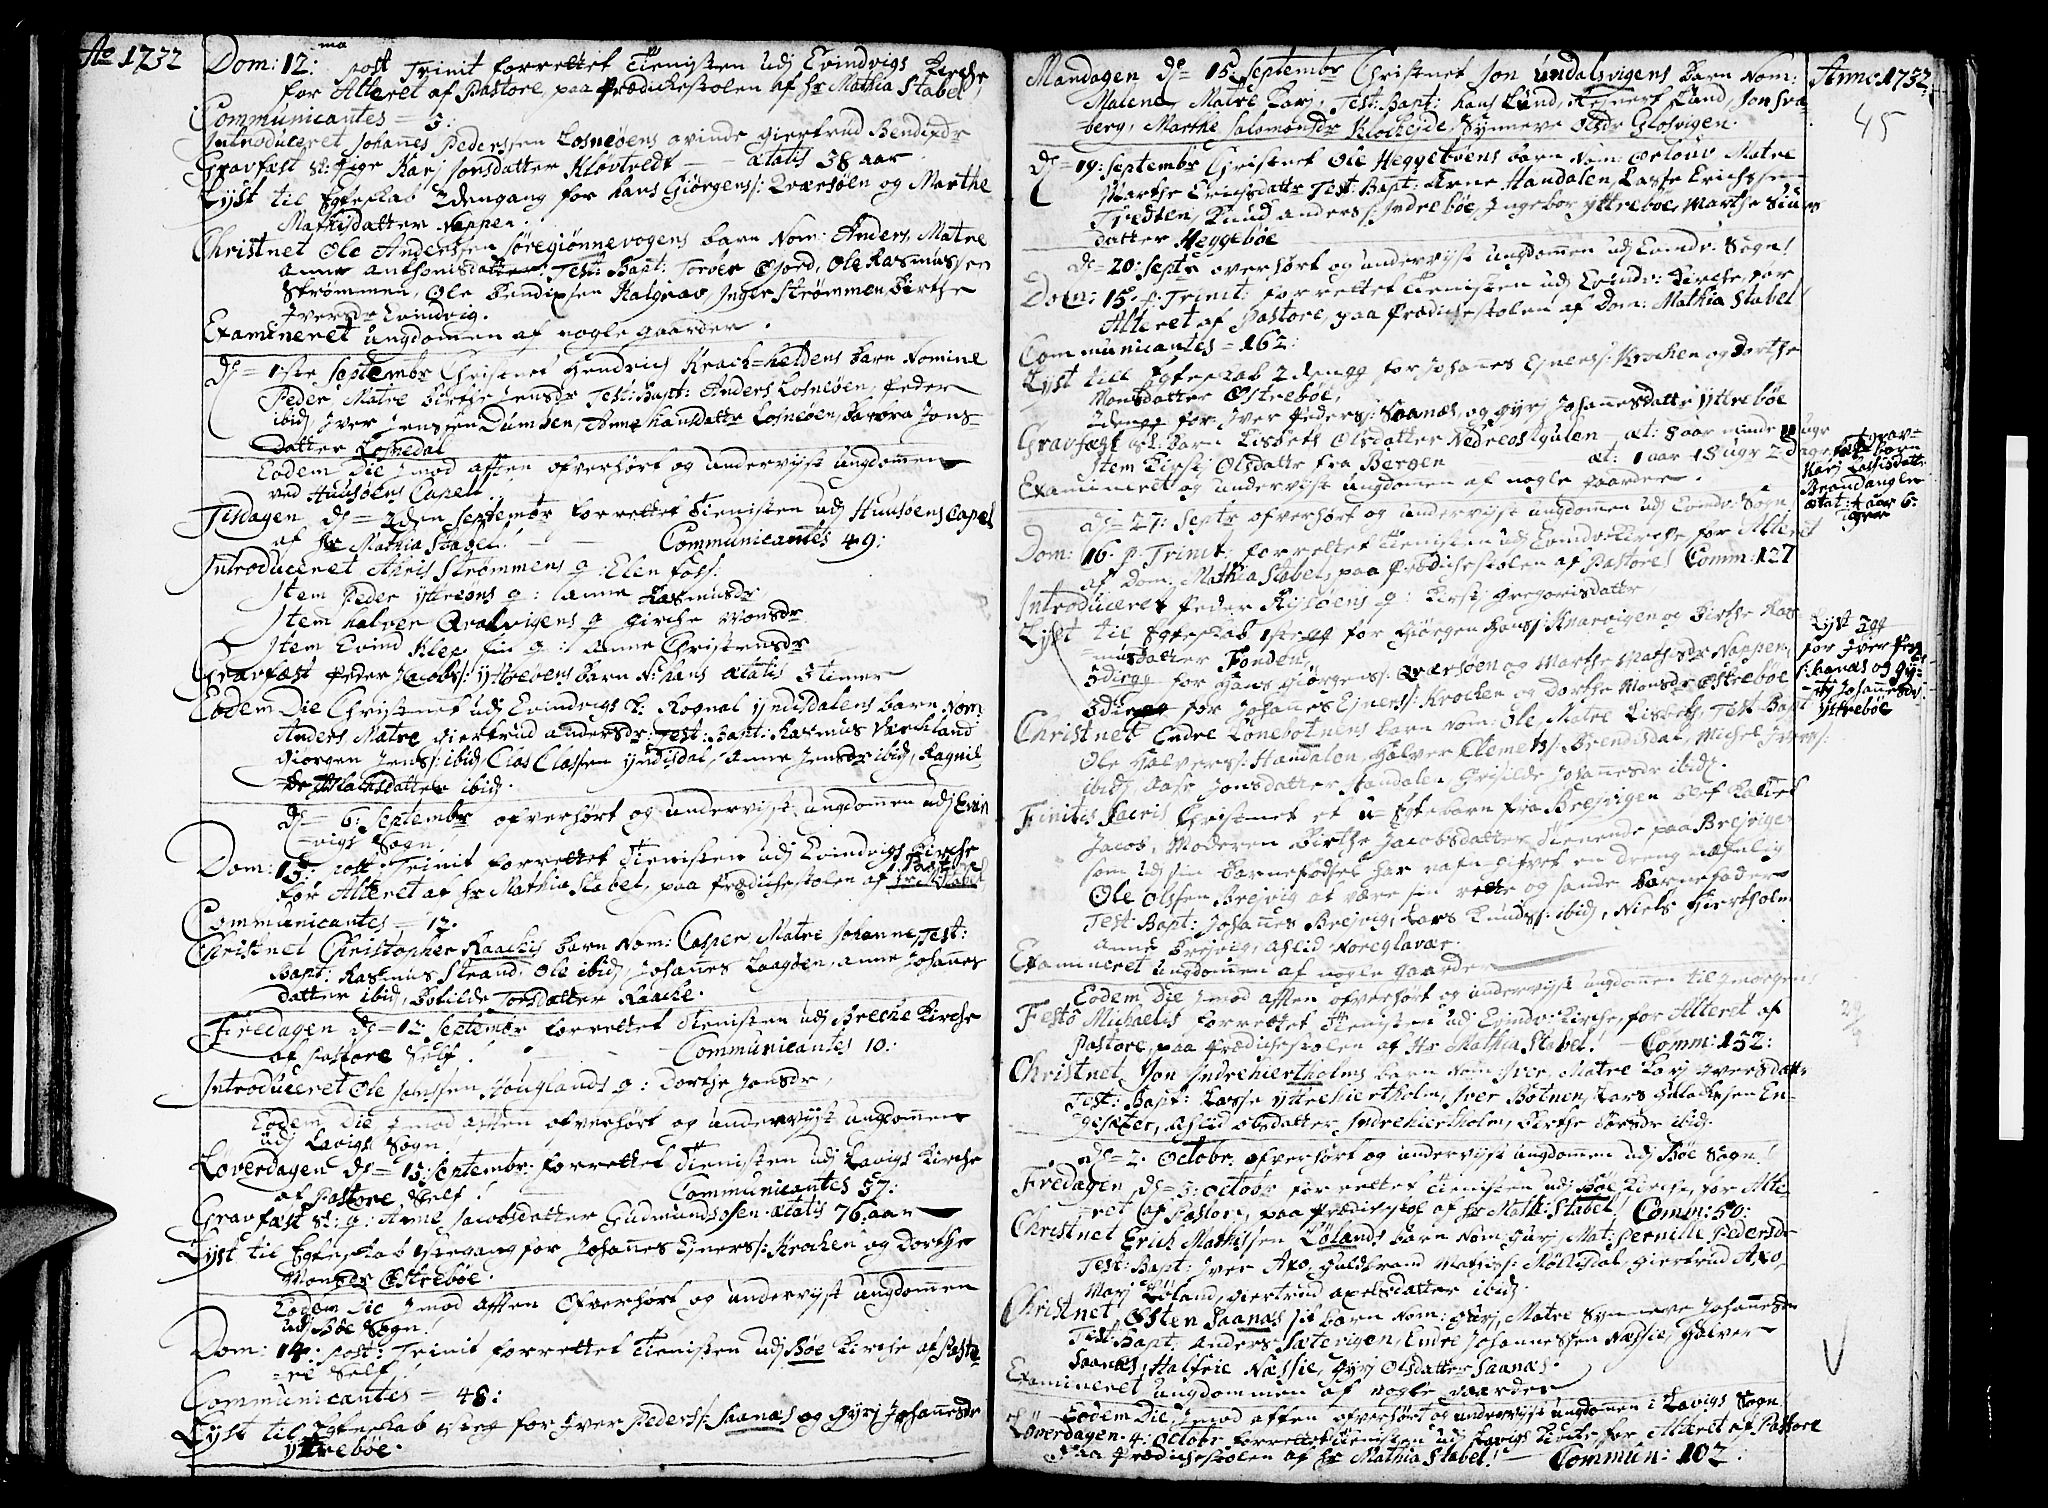 Ao 1732
Dom: 12:ma post Trinit forrettet Tienisten udj Evindvigs Kirche
for Alteret af Pastore, paa Prædickestolen af Hr Mathia Stabel,
Communicantes = 3:
Introduceret Johanes Pederssen Losneøens qvinde Giertrud Bendixdr
Gravfæst Sl: Pige Karj Jonsdatter Kløvtvedt — ætatis 38 aar
Lyst til Egteskab 2dengang for Hans Giörgens: Qværsöen og Marthe
Mathisdatter Nappen.
Christnet Ole Anderssen Søregiönnevogens barn Nom: Anders, Matre
Anne Anthonisdatter. Test: Bapt: Torger Fiord, Ole Rasmussen
Strømmen, Ole Bendixsen Kalgrav, Inger Strømmen, Birthe
Iversdr Evindvig.
Examineret ungdomen af nogle gaarder.
dn = 1ste Septembr Christnet Hendrich Krach=heldens barn Nomine
Peder, Matre Birthe Jensdr Test: Bapt: Anders Losneøen, Peder
ibid, Iver Jenssen Dumben, Anne Hansdatter Losneøen, Barbra Jons-
datter Losnedal
Eodem Die imod afften ofverhørt og undervist ungdomen
ved Huusøens Capel.
Tisdagen dn = 2den Septembr forrettet Tienisten udj Huusøens Capel
af Hr Mathia Stabel! — Communicantes 49:
Introduceret Thris Strømmens q: Elen Foss:
Item Peder Yttreøns q: Anne Rasmusdr
Item Halvor Qvalvigens q Girthe Monsdr
Item Evind Klep sin q: Anne Christensdr
Gravfæst Peder Jacobs: Yttreøens barn N: Hans ætatis 3 timer
Eodem Die Christnet udj Evindvigs K: Rognal Yndisdalens barn Nom
Anders, Matre Giertrud Andersdr: Test: Bapt: Rasmus Verkland
Giörgen Jens: ibid, Clas Classen Yndisdal, Anne Jensdr ibid, Ragnil
datter ibid.
dn = 6: Septembr ofverhørt og undervist ungdomen udj Evin
=vigs Sogn.
Dom: 13: post Trinit forrettet Tienisten udj Evindvigs Kirche
for Alteret af Hr Mathia Stabel, paa Prædichestolen af Pastore
Communicantes = 17.
Christnet Christopher Raackis barn Nom: Casper, Matre Johanne, Test:
Bapt: Rasmus Strand, Ole ibid, Johanes Laagøen, Anne Johanes
datter ibid, Botilde Torsdatter Raacke.
Fredagen dn = 12: Septembr forrettet Tienisten udj Breche Kirche
af Pastore Self! — Communicantes 10:
Introduceret Ole Jonssen Houglands q: Dorthe Jonsdr,
Eodem Die imod aften ofverhørt og undervist ungdomen
udj Lavigs Sogn!
Løverdagen dn = 13: Septembr: forrettet Tienisten udj Lavigs Kirche
af Pastore Self! — Communicantes 37:
Gravfæst Sl: q: Anne Jacobsdatter Gudmundsosen ætatis 76: aar
Lyst til Egteskab 1stegang for Johanes Ejners: Krochen og Dorthe
Monsdr Østrebøe.
Eodem Die imod Afften Ofverhørt og undervist ungdomen
udj Bøe Sogn!
Dom: 14: post: Trinit forrettet Tienisten udj Bøe Kirche af Pasto
=re Self.
Communicantes = 48:
Lyst til Egteskab 1steg for Iver Peders: Saanæs og Gyrj Johanesdr
Yttrebøe.
Mandagen dn = 15 Septembr Christnet Jon Undalsvigens barn Nom:
Malene, Matre Karj, Test: Bapt: Hans Lund, Rejnert Land, Jon Sva
berg, Marthe Salomonsdr Klochejde, Synneve Olsdr Glosvigen.
dn = 19: Septembr Christnet Ole Heggebøens barn Nom: Orlouv Matre
Marthe Erichsdatter Test: Bapt: Arne Handalen, Lasse Erichssen
Tvedten, Knud Anders: Indrebøe, Ingebor Yttrebøe, Marthe Siurs
datter Heggebøe
dn = 20: Septr overhørt og undervist ungdomen udj Evindv: Sogn!
Dom: 15. p. Trinit: forrettet Tienisten udj Evindv: Kirche, for
Alteret af Pastore, paa Prædichestolen af Dom: Mathia Stabel
Communicantes = 162:
Lyst till Egteskab 2dengg for Johanes Ejners: Krochen og Dorthe
Monsdatter Østrebøe,
2dengg for Iver Peders: Saanæs, og Gyrj Johanesdatter Yttrebøe
Gravfæst Sl: barn Lisbeth Olsdatter Nedreostgulen æt: 8 aar minde 18 uge
Item Kirstj Olsdatter fra Bergen æt: 1 aar 18 ugr 2 dage
Examineret og undervist ungdomen af nogle gaarder.
dn = 27: Septr ofverhørt og undervist ungdomen udj Evindv: Sogn
Dom: 16. p. Trinit: forrettet Tienisten udj Evindv: Kirche for Alteret
af Dom: Mathia Stabel, paa Prædichestolen af Pastore! Comm: 127
Introduceret Peder Rislöens q: Kirstj Gregorisdatter
Lyst til Egteskab 1stegg for Giörgen Hans: Knarvigen og Birthe Ras-
=musdatter Fonden
3diegg for Hans Giörgens: Qværsöen og Marthe Mathisdr Nappen,
3diegg for Johanes Ejners: Krochen og Dorthe Monsdr Østrebøe
Christnet Endre Lønebotnens barn nom: Ole, Matre Lisbeth, Test: Bapt
Ole Halvers: Handalen, Halver Clemets: Brendisdal, Michel Ivers:
ibid, Aase Jonsdatter Handalen, Grisilde Johanesdr ibid.
Finitis Sacris Christnet et u=Egte barn fra Brejvigen blef kaldet
Jacob, Moderen Birthe Jacobsdatter tienende paa Brejvigen
som udj sin barnefødsel har nafn gifvet en dreng nafnlig
Ole Olssen Brejvig at være sin rette og sande barnefader
Test: Bapt: Johanes Brejvig, Lars Knuds: ibid, Niels Hiertholm
Anne Brejvig, Aslid Noreglavær.
Examineret ungdomen af nogle gaarder
Eodem Die imod aften ofverhørt og undervist ungdomen til imorgen
Festo Michaelis forrettet Tienisten udj Evindv: Kirche, for Alteret af
Pastore, paa Prædichestolen af Hr Mathia Stabel! — Comm: 152:
Christnet Jon Indrehiertholms barn Nom: Iver, Matre Karj Iversdatter
Test: Bapt: Lasse Yttrehiertholm, Iver Botnen, Lars Falachsen En-
gesæter, Aslid Olsdatter Indrehiertholm, Birthe Torsdr ibid.
dn = 2. Octobr. ofverhørt og undervist ungdomen udj Bøe Sogn!
Fredagen dn = 3: Octobr forrettet Tienisten udj Bøe Kirche, for Alte
=ret af Pastore, paa Prædichestol af Hr Math: Stabel! Comm: 50:
Christnet Erich Mathissen Løland's barn Nom: Gurj, Mat: Pernille Pedersdr
Test: Bapt: Iver Axo, Guldbrand Mathiss: Møllisdal, Giertrud Axo,
Marj Løland, Giertrud Axelsdatter ibid.
Christnet Østen Saanæs sit barn Nom: Gurj, Matre Synneve Johanesdr
Test: Bapt: Anders Sætevigen, Endre Johannessen Næssie, Halver
Saanæs, Halfrie Næssie, Gyrj Olsdatter Saanæs.
Examineret ungdommen af nogle gaarder
Eodem Die imod aften ofverhørt og undervist ungdomen i Lavigs Sogn
Løverdagen 4: Octobr forrettet Tienisten udj Lavigs Kirche for Alteret af Pastore
Paa Prædichestolen af Hr Mathia Stabel! — Commun: 102:
Anno 1732
45
grav-
fæst barn
Karj Lassisdatter
Brandanger
ætat: 4 aar 6:
uger
Lyst 3gg
for Iver Ped
s: Saanæs og Gy-
rj Johanesdr
Yttrebøe
29/9